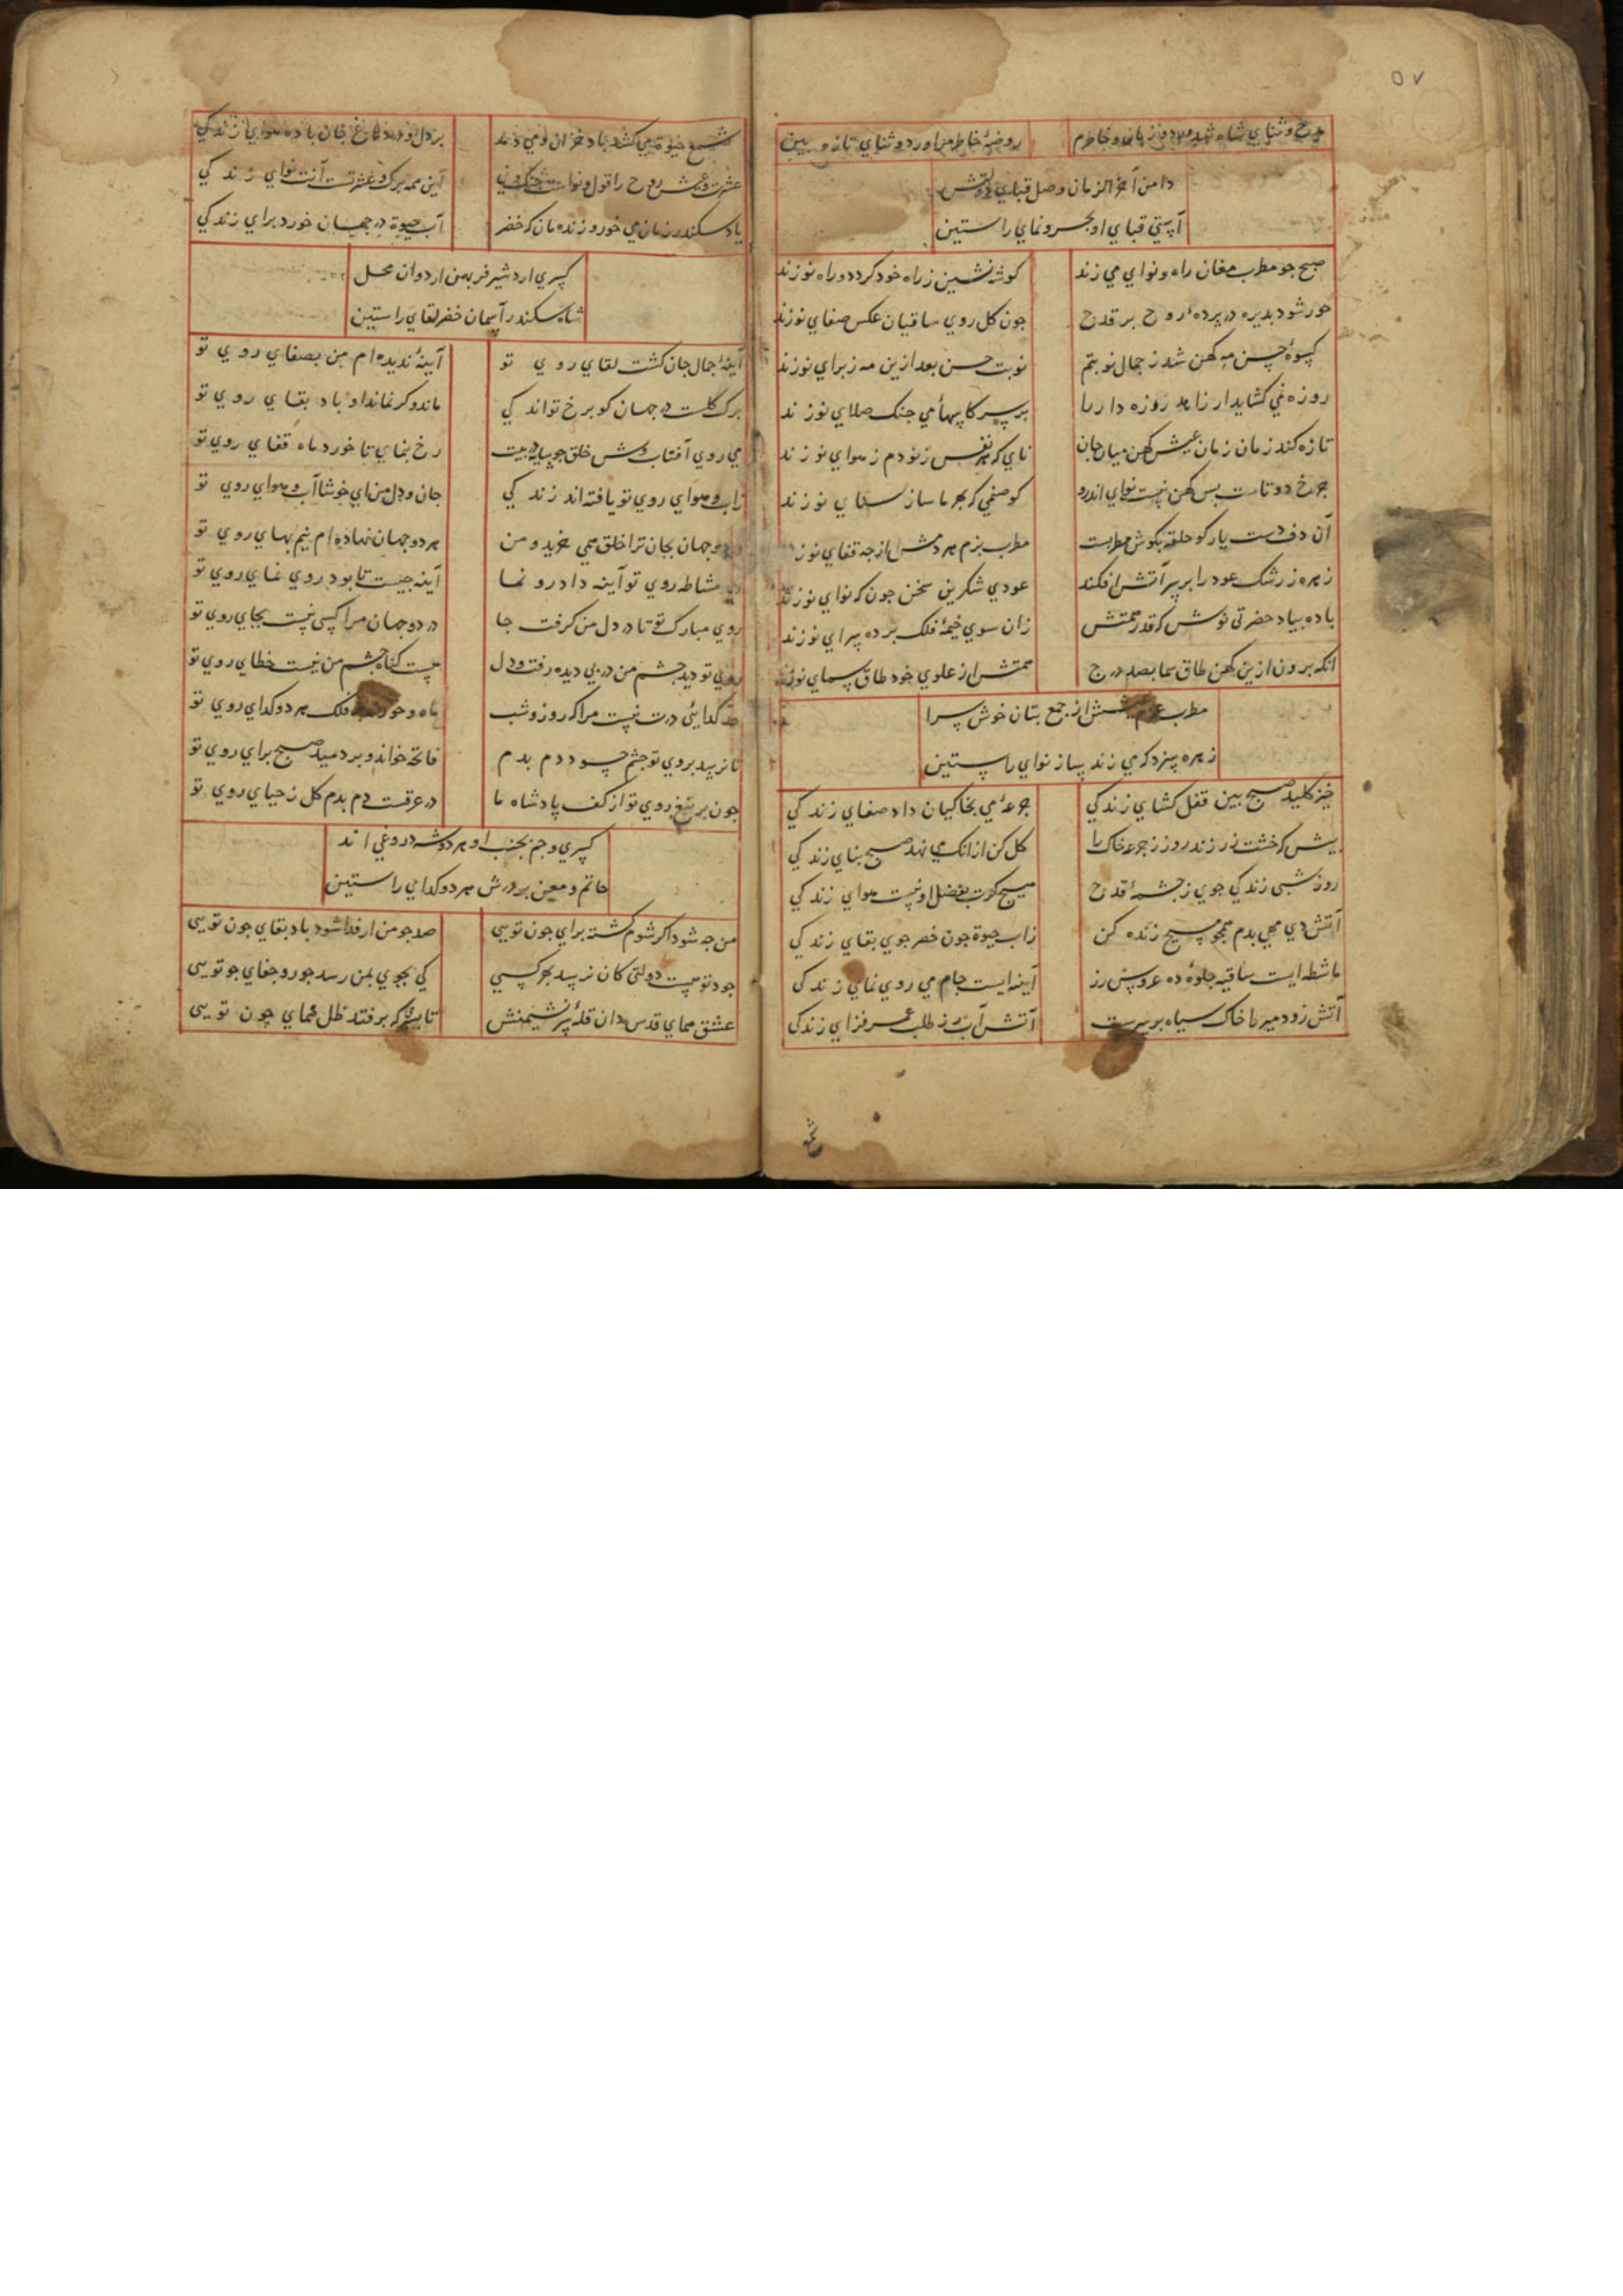 ۵۷
مدح و ثناي شاه شد ورد زبان و خاطرم روضهٔ خاطر من اورد و ثناي تازه بين
دامن آخر الزمان وصل قباي دولتش
آستي قباي او بحر و نماي راستين
صبح جو مطرب مغان راه و نواي مي زند كوشه نشين ز راه خود كردد و راه نو زند
خور شود بديره در پردهٔ روح بر قدح جون كل روي ساقيان عكس صفاي نو زند
كيسوهٔ حسن مه كهن شد ز جمال نو بتم نوبت حسن بعد ازين مه ز براي نو زند
روزه نمي كشايد ار زاهد روزه دار ما بر سر كاسهاء مي جنك صلاي نو زند
تازه كند زمان زمان عيش كهن ميان جان ناي كه هر نفس ز نو دم ز هواي نو زند
جرخ دوتاست بس كهن نيست نواي اندرو كو صنمي كه بهر ما ساز ستاي نو زند
آن دف دست يار كو حلقه بكوش مطربست مطرب بزم هر دمش از چه قفاي نو زند
زهره ز رشك عود را بر سر آتش افكند عودي شكرين سخن جون كه نواي نو زند
باده بياد حضرتي نوش كه قدر همتش زان سوي خيمهٔ فلك پرده سراي نو زند
انكه برون ازين كهن طاق سما بصد درج همتش از علوي خود طاق سماي نو زند
مطرب بزم عيش از جمع بتان خوش سرا
زهره سزد كه مي زند بساز نواي راستين
خيز كليد صبح بين قفل كشاي زندكي جرعهٔ مي بخاكيان داد صفاي زندكي
پيش كه خشت زر زند روز ز جرعه خاك را كل كن از انك مي نهد صبح بناي زندكي
روز شبي زندكي جوي ز جشمهٔ قدح مسيح كوت بفضل او نيست هواي زندكي
آتش دي مهي بدم همچو مسيح زنده كن ز آب حيوة جون خضر جوي بقاي زندكي
ماشطه ايست ساقيه جلوهٔ ده عروس رز آينه ايست جام مي روي نماي زندكي
آتش زود ميرما خاك سياه بر سرست آتش آب رز طلب عمر فزاي زندكي
شمع حيوة مي كشد باد خزان و مي دمد بر دل و درد و داغ جان باده هواي زندكي
عشرت و عيش روح را قول و نواست جنك و ني اين همه برك و عشرتست آنت نواي زندكي
ياد سكندر زمان مي خور و زنده مان كه خضر آب حيوة در جهان خورد براي زندكي
كسري اردشير فر بهمن اردوان محل
شاه سكندر آسمان خضر لقاي راستين
آينهٔ جمال جان كشت لقاي روي تو آينهٔ نديده ام من بصفاي روي تو
برك كلست در جهان كو برخ تو اند كي ماند و كر نماند او باد بقاي روي تو
مي روي آفتاب وش خلق جو سايه در پيت رخ بنماي تا خورد ماه قفاي روي تو
ز آب و هواي روي تو يافته اند زندكي جان و دل من اي خوشا آب و هواي روي تو
دو جهان بجان ترا خلق همي خريد و من هر دو جهان نهاده ام نيم بهاي روي تو
مشاطه روي تو آينه داد رو نما آينه جيست تا بود روي نماي روي تو
روي مبارك تو تا در دل من كرفت جا در دو جهان مرا كسي نيست بجاي روي تو
روي تو ديد جشم من در پي ديده رفت دل نيست كناه جشم من نيست خطاي روي تو
حد كدايئ درت نيست مرا كه روز و شب ماه و خور فلك هر دو كداي روي تو
تا نرسد بروي تو جشم حسود دم بدم فاتحه خواند و بر دميد صبح براي روي تو
جون بر تيغ روي تو از كف پادشاه ما در عرقست دم بدم كل ز حياي روي تو
كسري و جم بجنب او هر دو شه دروغي اند
حاتم و معن بر درش هر دو كداي راستين
من جه شود اكر شوم كشته براي جون تويي صد جو من ار فدا شود باد بقاي جون تويي
جود تو نيست دولتي كان نرسد بهر كسي كي بجوي بمن رسد جور و جفاي جو تويي
عشق هماي قدس دان قلهٔ پر نشيمنش تا بسر كه بر فتد ظل هماي چون تويي